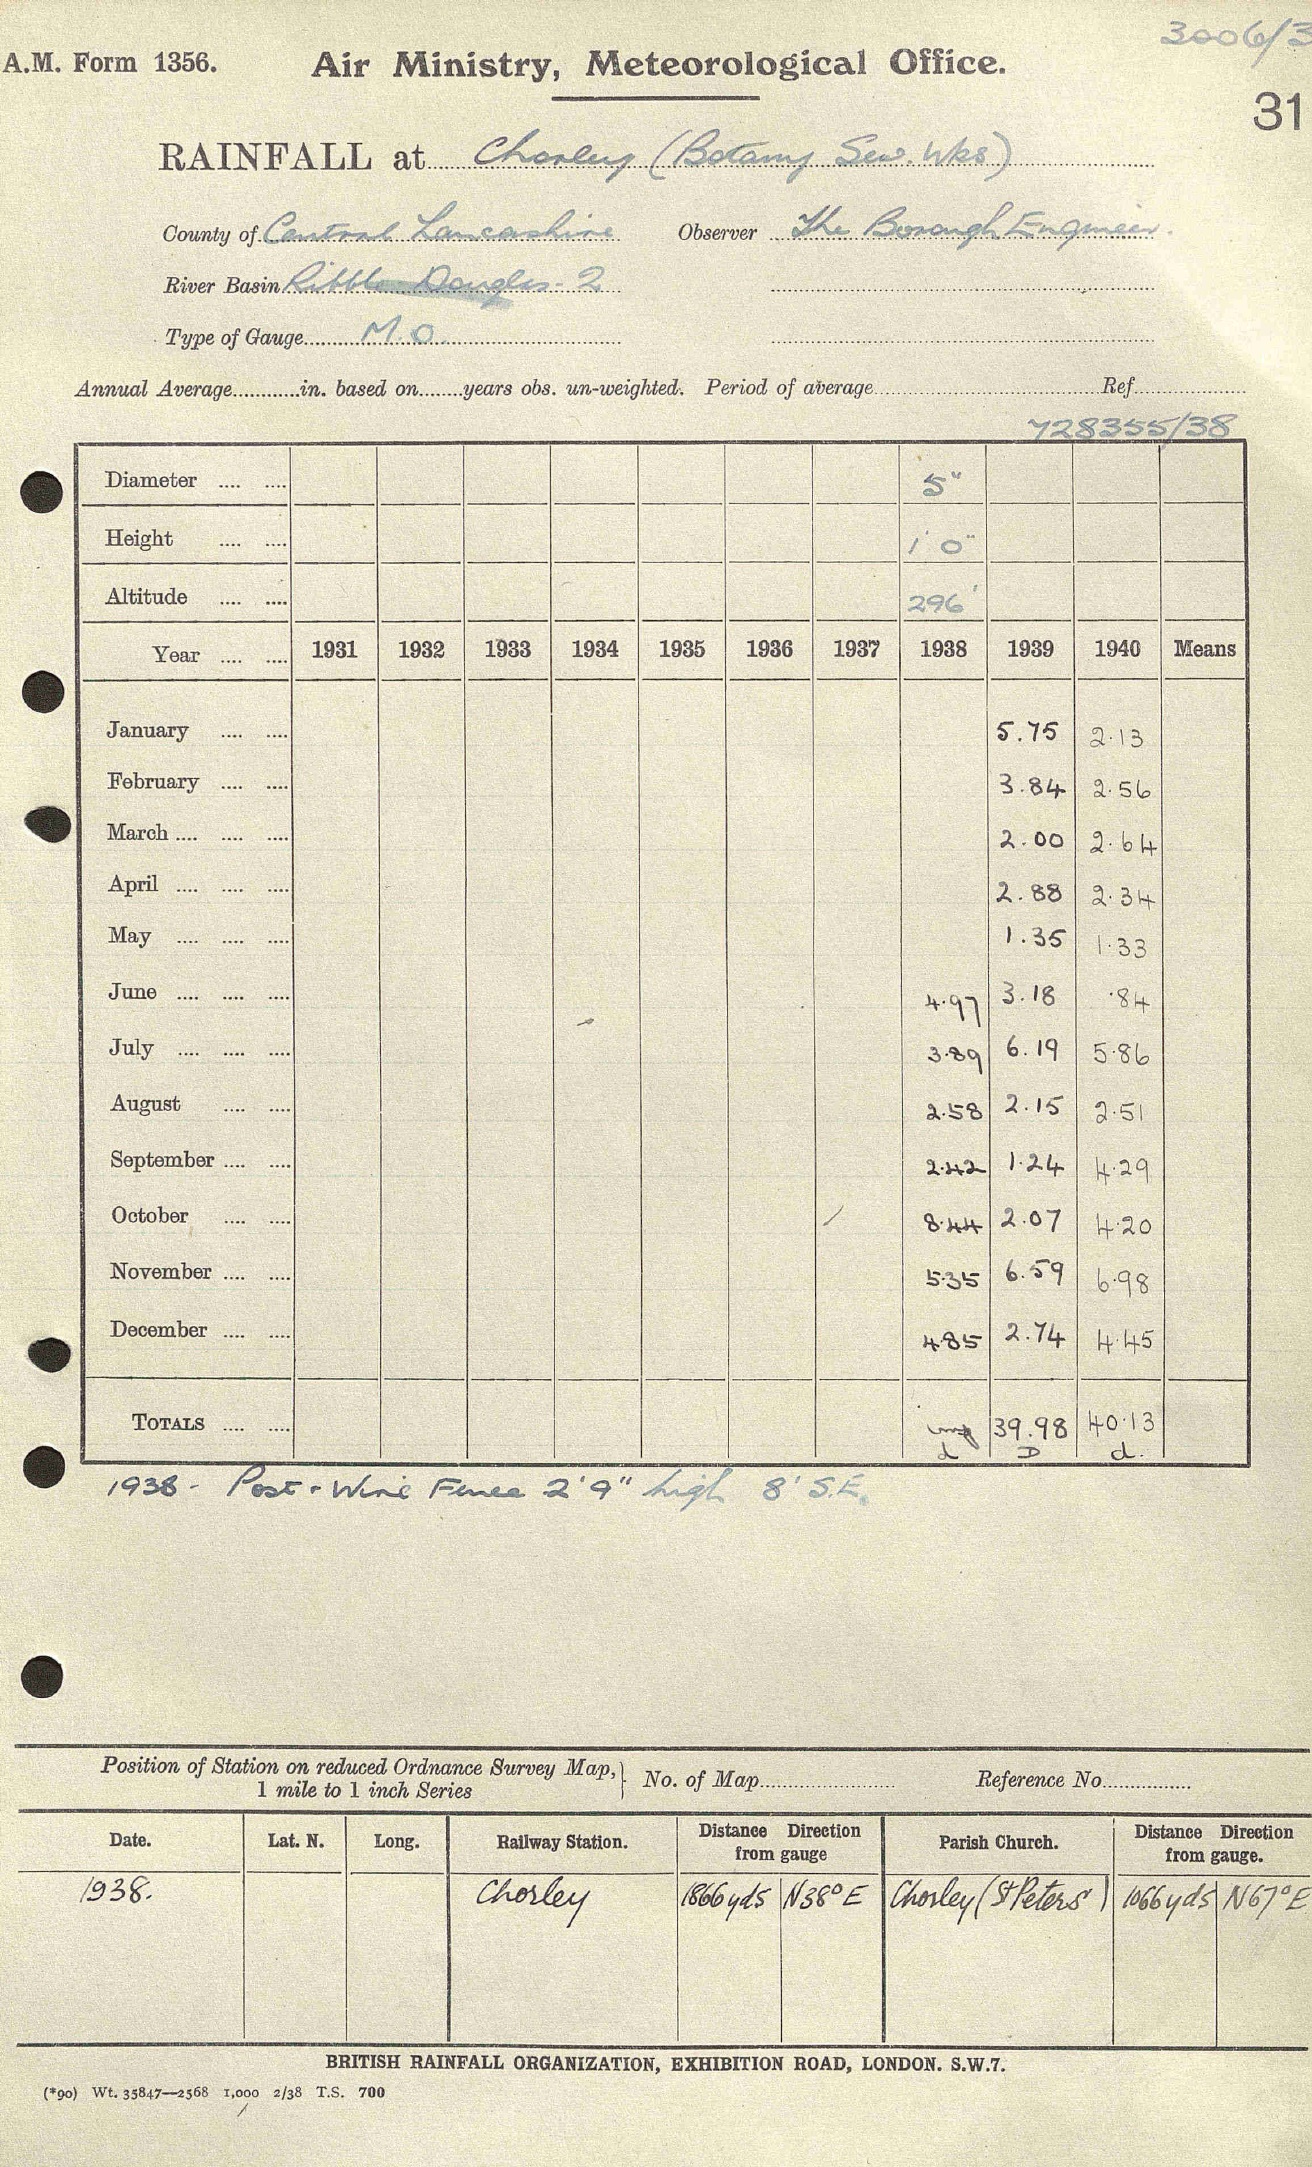 3006/3
A.M. Form 1356. Air Ministry, Meteorological Office.
31
RAINFALL at Chorley (Botany Sew. Wks)
County of Central Lancashire Observer The Borough Engineer.
River Basin Ribble Douglas - 2
Type of Gauge M.O.
Annual Average in. based on years obs. un-weighted. Period of average Ref.
728355/38
Diameter 5"
Height 1' 0"
Altitude 296'
Year 1931 1932 1933 1934 1935 1936 1937 1938 1939 1940 Means
January 5.75 2.13
February 3.84 2.56
March 2.00 2.64
April 2.88 2.34
May 1.35 1.33
June 4.97 3.18 .84
July 3.89 6.19 5.86
August 2.58 2.15 2.51
September 2.42 1.24 4.29
October 8.44 2.07 4.20
November 5.35 6.59 6.98
December 4.85 2.74 4.45
TOTALS 39.98 40.13
d D d.
1938 - Post & Wire Fence 2'9" high 8' S.E.
Position of Station on reduced Ordnance Survey Map, 1 mile to 1 inch Series } No. of Map Reference No.
Date. Lat. N. Long. Railway Station. Distance Direction from gauge Parish Church. Distance Direction from gauge.
1938. Chorley 1866 yds N38°E Chorley (St Peters) 1066 yds N67°E
BRITISH RAINFALL ORGANIZATION, EXHIBITION ROAD, LONDON. S.W.7.
(*90) Wt. 35847—2568 1,000 2/38 T.S. 700